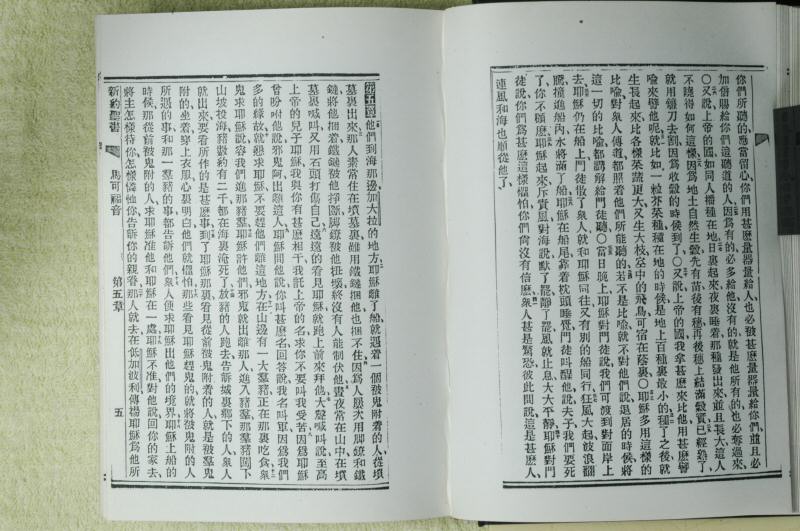 你們所聽的應當留心你們用甚麼量器量給人也必照甚麼量器量給你們並且必
加倍賜給你們這聽道的人因爲有的必多給他沒有的就是他所有的也必奪過來
○又說上帝的國如同人播種在地日裏起來夜裏睡着那種發出來並且長大這人
不曉得如何這樣因爲地土自然生穀先有苗後有穗再後穗上結滿穀實已經熟了
就用鐮刀去割因爲收穀的時候到了○又說上帝的國我拿甚麼來比他用甚麼譬
喻來譬他呢就比如一粒芥菜種種在地的時候是地上百種裏最小的種了之後就
生長起來比各樣菜蔬更大又生大枝空中的飛鳥可宿在蔭裏○耶穌多用這樣的
比喻對衆人傳道都照着他們所能聽的若不是比喻就不對他們說退居的時候將
這一切的比喻都講解給門徒聽○當日晚上耶穌對門徒說我們可渡到對面岸上
去耶穌仍在船上門徒散了衆人就和耶穌同往又有別的船同行狂風大起波浪翻
騰撞進船內水將滿了船耶穌在船尾靠着枕頭睡覺門徒叫醒他說夫子我們要死
了你不顧麽耶穌起來斥責風對海說默了罷靜了罷風就止息大大平靜耶穌對門
徒說你們爲甚麼這樣膽怯你們尙沒有信麽衆人甚是驚恐彼此問說這是甚麼人
連風和海也順從他了
第五章他們到海那邊加大拉的地方耶穌離了船就遇着一個被鬼附着的人從墳
墓裏出來那人素常住在墳墓裏雖用鐵鏈捆他也捆不住因爲人屢次用脚鐐和鐵
鏈將他捆着鐵鏈被他掙斷脚鐐被他扭壞終沒有人能制伏他晝夜常在山中在墳
墓裏喊叫又用石頭打傷自己遠遠的看見耶穌就跑上前來拜他大聲喊叫說至高
上帝的兒子耶穌我與你有甚麼相干我託上帝的名求你不要叫我受苦因爲耶穌
曾吩咐他說邪鬼阿出離這人耶穌問他說你叫甚麼名回答說我名叫軍因爲我們
多的緣故就懇求耶穌不要趕他們離這地方在山邊有一大羣豬正在那裏吃食衆
鬼求耶穌說容我們進那豬羣耶穌許他們邪鬼就出離那人進入豬羣那羣豬闖下
山坡投海豬數約有二千都在海裏淹死了放豬的人跑去告訴城裏鄉下的人衆人
就出來要看所作的是甚麼事到了耶穌那裏看見從前被鬼附着的人就是被羣鬼
附的坐着穿上衣服心裏明白他們就懼怕那些看見耶穌趕鬼的就將被鬼附的人
所遇的事和那一羣豬的事都告訴他們衆人便求耶穌出他們的境界耶穌上船的
時候那從前被鬼附的人求耶穌准他和耶穌在一處耶穌不准對他說回你的家去
將主怎樣待你怎樣憐恤你告訴你的親眷那人就去在低加波利傳揚耶穌爲他所
新約聖書 馬可福音 第五章 五